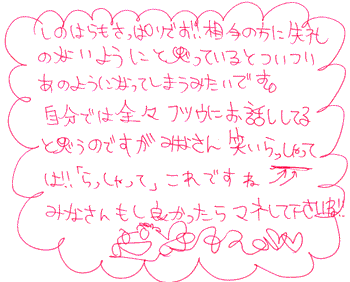 しのはらもさっぱりです!! 相手の方に失礼
のないようにと思っているとついつい
あのようになってしまうみたいです。
自分では全々フツウにお話ししてる
と思うのですがみなさん笑いらっしゃって
は!!「らっしゃって」これですね
みなさんもし良かったらマネして下さいね!!